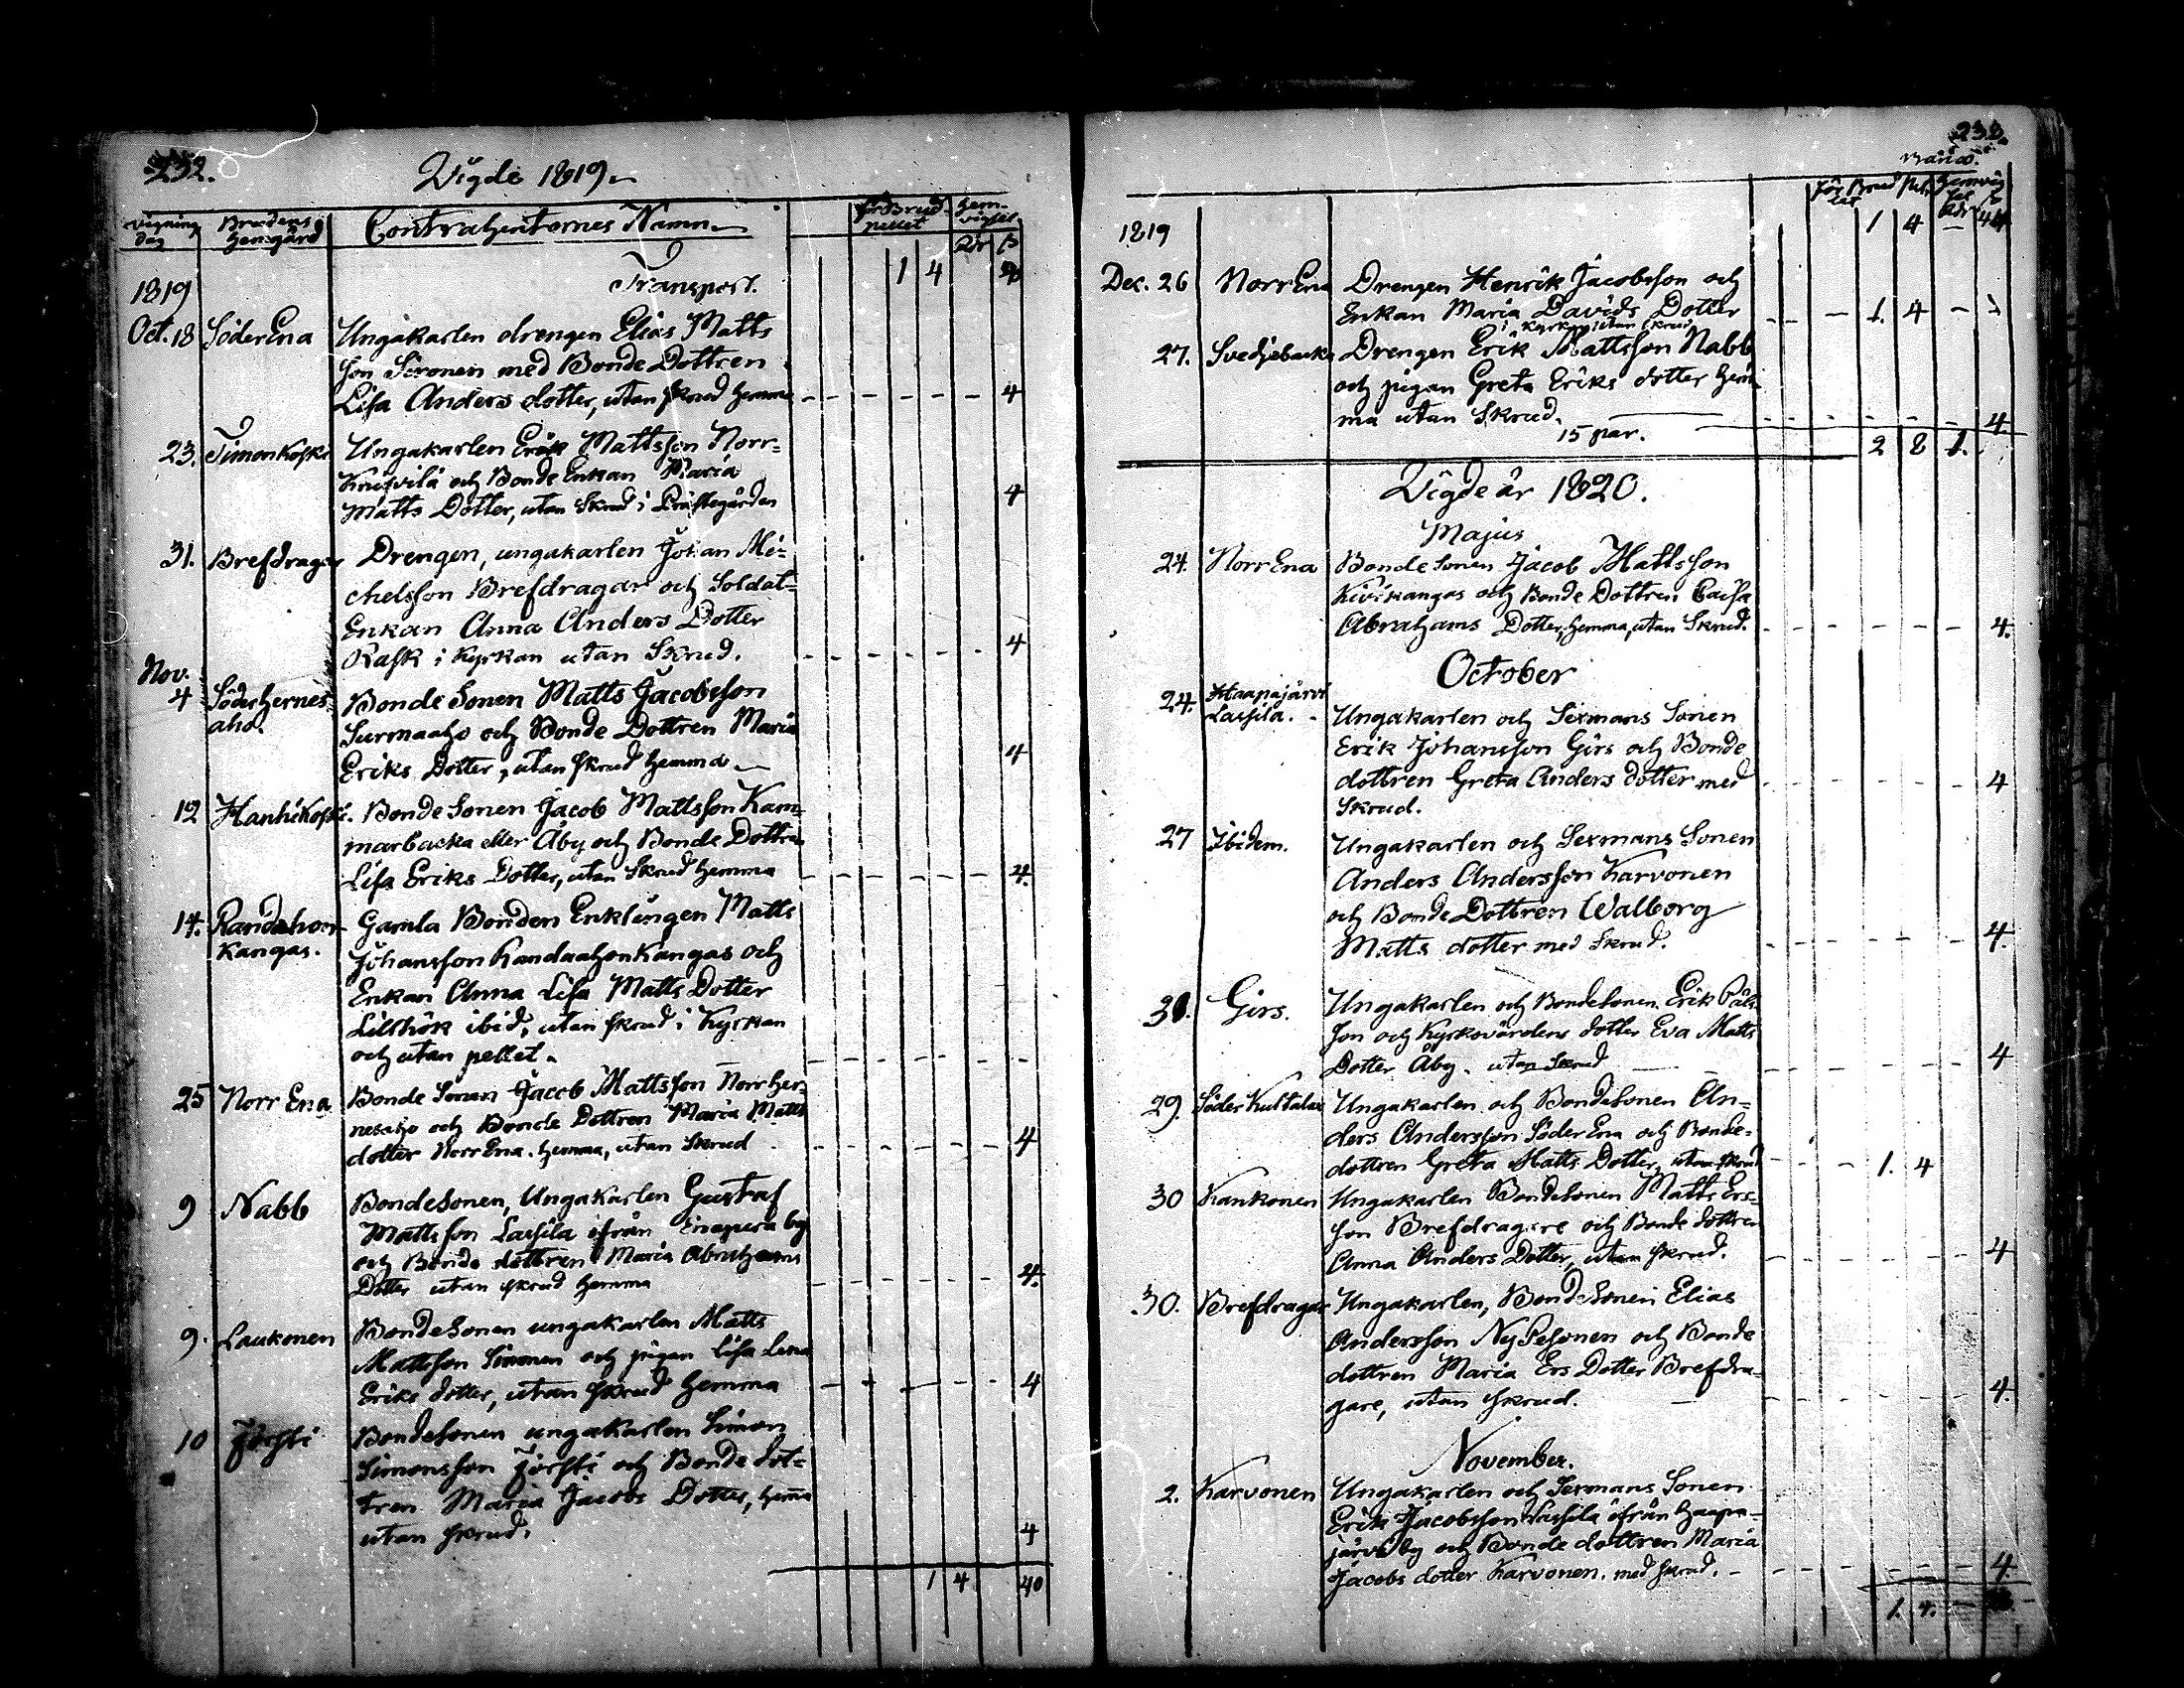 232.
Vigde 1819.
Vignings dag
Brudens Hemgård
Contrahenternes Namn.
för Brud-pellet
Hemvigsel
Rdr ß
1819
Transport. 1 4
Oct. 18 Söder Ena Ungakarlen drengen Elias Matts
son Sironen med Bonde Dottren
Lisa Anders dotter, utan skrud hemma 4
23. Timonkoski Ungakarlen Erik Mattsson Norr-
Knuivila och Bonde Enkan Maria
Matts Dotter, utan Skrud i Prästegården 4
31. Brefdragar Drengen, ungakarlen Johan Mi-
chelsson Brefdragar och Soldat-
Enkan Anna Anders Dotter
Rask i Kyrkan utan Skrud. 4
Nov.
4 Söderhernes aho. Bonde Sonen Matts Jacobsson
Surmaaho och Bonde Dottren Maria
Eriks Dotter, utan skrud hemma 4
12 Hanhikoski. Bonde Sonen Jacob Mattsson Kam-
marbacka eller Åby och Bonde Dottren
Lisa Eriks Dotter, utan Skrud hemma 4.
14. Randahon Kangas. Gamla Bonden Enklingen Matts
Johansson Randaahonkangas och
Enkan Anna Lisa Matts Dotter
Lillhök ibid, utan skrud i Kyrkan
och utan pellet.
25 Norr Ena Bonde Sonen Jacob Mattsson Norrher-
nesaho och Bonde Dottren Maria Matts
dotter Norr Ena. hemma, utan Skrud 4
9 Nabb BondeSonen, Ungakarlen Gustaf
Mattsson Lassila ifrån by
och Bonde dottren Maria Abrahams
Dotter utan skrud hemma 4.
9. Laukonen BondeSonen ungakarlen Matts
Mattsson Simonen och pigan Lisa Lena
Eriks dotter, utan skrud hemma 4
10 BondeSonen ungakarlen Simon
Simonsson och Bonde dot-
tren Maria Jacobs Dotter, hemma
utan skrud. 4
1 4 40
För Brud Pellet
Hemvigsel
1819 1 4 – 44
Dec. 26 Norr Ena Drengen Henrik Jacobsson och
Enkan Maria Davids Dotter 1. 4
i kyrkan utan skrud
27. Svedjebacka Drengen Erik Mattsson Nabb
och pigan Greta Eriks dotter hem-
ma utan Skrud. 4
15 par. 2 8 1.
Vigde år 1820.
Majus
24. Norr Ena Bonde Sonen Jacob Mattsson
Kivikangas och Bonde Dottren Caisa
Abrahams Dotter, hemma, utan Skrud. 4.
October
24. Haapajärvi Lassila. Ungakarlen och Sexmans Sonen
Erik Johansson Girs och Bonde
dottren Greta Anders dotter med 4
Skrud.
27 Ibidem. Ungakarlen och Sexmans Sonen
Anders Andersson Karvonen
och Bonde Dottren Walborg
Matts dotter med Skrud. 4.
Girs. Ungakarlen och BondeSonen Erik Påls
son och Kyrkovärdens dotter Eva Matts
Dotter Åby. utan Skrud 4
29. Söder Kultalax Ungakarlen och BondeSonen An-
ders Andersson Söder Ena och Bonde-
dottren Greta Matts Dotter, utan skrud 1. 4
30 Kankonen Ungakarlen BondeSonen Matts Ers-
son Brefdragare och Bonde dottren
Anna Anders Dotter, utan skrud. 4
30. Brefdragar Ungakarlen, BondeSonen Elias
Andersson NyPesonen och Bonde
dottren Maria Ers Dotter Brefdra-
gare, utan skrud. 4.
November.
2. Karvonen Ungakarlen och Sexmans Sonen
Erik Jacobsson Lassila ifrån Haapa-
järvi by och Bonde dottren Maria
Jacobs dotter Karvonen. med skrud. 4.
1. 4.